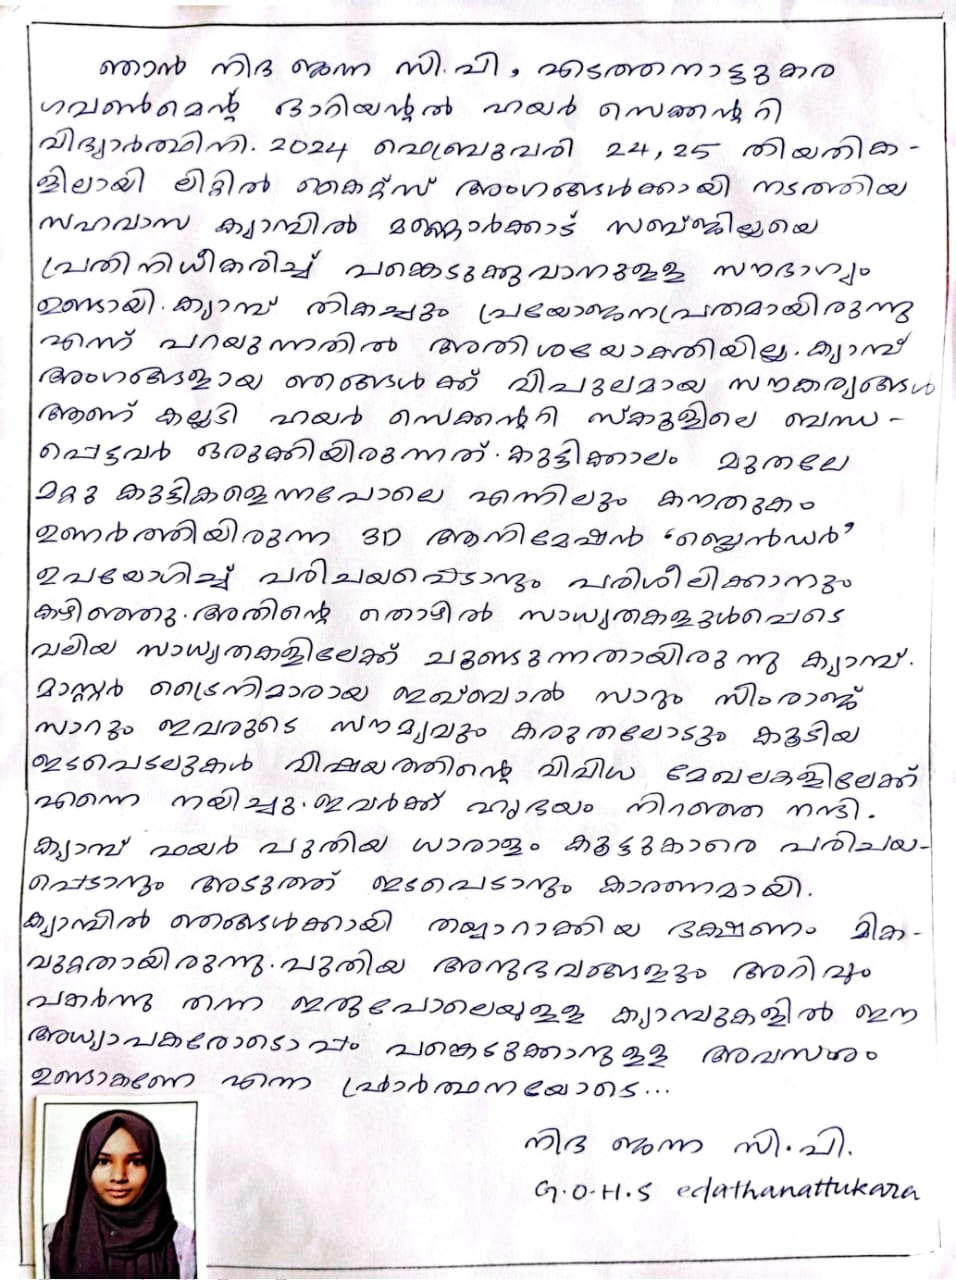 ഞാൻ നിദ ജന്ന സി.പി, എടത്തനാട്ടുകര
ഗവൺമെന്റ് ഓറിയന്റൽ ഹയർ സെക്കന്ററി
വിദ്യാർത്ഥിനി. 2024 ഫെബ്രുവരി 24,25 തിയതിക-
ളിലായി ലിറ്റിൽ കൈറ്റ്സ് അംഗങ്ങൾക്കായി നടത്തിയ
സഹവാസ ക്യാമ്പിൽ മണ്ണാർക്കാട് സബ്ജില്ലയെ
പ്രതിനിധീകരിച്ച് പങ്കെടുക്കുവാനുള്ള സൗഭാഗ്യം
ഉണ്ടായി. ക്യാമ്പ് തികച്ചും പ്രയോജനപ്രതമായിരുന്നു
എന്ന് പറയുന്നതിൽ അതിശയോക്തിയില്ല. ക്യാമ്പ്
അംഗങ്ങളായ ഞങ്ങൾക്ക് വിപുലമായ സൗകര്യങ്ങൾ
ആണ് കല്ലടി ഹയർ സെക്കന്ററി സ്കൂളിലെ ബന്ധ-
പ്പെട്ടവർ ഒരുക്കിയിരുന്നത്. കുട്ടിക്കാലം മുതലേ
മറ്റു കുട്ടികളെന്നപോലെ എന്നിലും കൗതുകം
ഉണർത്തിയിരുന്ന 3D ആനിമേഷൻ 'ബ്ലെൻഡർ'
ഉപയോഗിച്ച് പരിചയപ്പെടാനും പരിശീലിക്കാനും
കഴിഞ്ഞു. അതിന്റെ തൊഴിൽ സാധ്യതകളുൾപ്പെടെ
വലിയ സാധ്യതകളിലേക്ക് ചൂണ്ടുന്നതായിരുന്നു ക്യാമ്പ്.
മാസ്റ്റർ ട്രൈനിമാരായ ഇഖ്ബാൽ സാറും സിംരാജ്
സാറും ഇവരുടെ സൗമ്യവും കരുതലോടും കൂടിയ
ഇടപെടലുകൾ വിഷയത്തിന്റെ വിവിധ മേഖലകളിലേക്ക്
എന്നെ നയിച്ചു. ഇവർക്ക് ഹൃദയം നിറഞ്ഞ നന്ദി.
ക്യാമ്പ് ഫയർ പുതിയ ധാരാളം കൂട്ടുകാരെ പരിചയ-
പ്പെടാനും അടുത്ത് ഇടപെടാനും കാരണമായി.
ക്യാമ്പിൽ ഞങ്ങൾക്കായി തയ്യാറാക്കിയ ഭക്ഷണം മിക-
വുറ്റതായിരുന്നു. പുതിയ അനുഭവങ്ങളും അറിവും
പകർന്നു തന്ന ഇതുപോലെയുള്ള ക്യാമ്പുകളിൽ ഈ
അധ്യാപകരോടൊപ്പം പങ്കെടുക്കാനുള്ള അവസരം
ഉണ്ടാകണേ എന്ന പ്രാർത്ഥനയോടെ...
നിദ ജന്ന സി.പി.
G.O.H.S edathanattukara